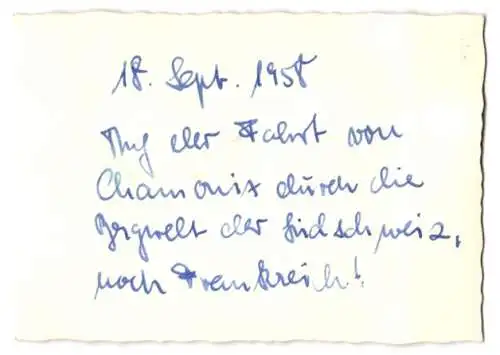 18. Sept. 1958
Auf der Fahrt von
Chamonix durch die
Bergwelt der Südschweiz,
nach Frankreich!